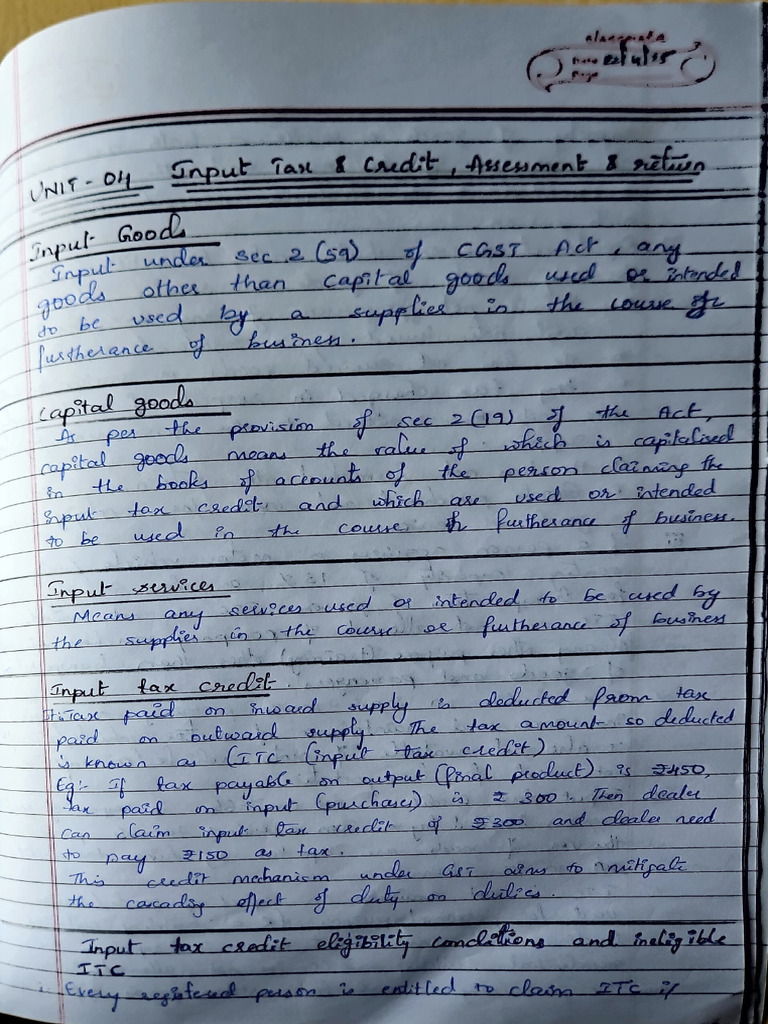 Date 22/4/25
Page
UNIT - 04 Input Tax & Credit, Assessment & return
Input Goods
Input under sec 2 (59) of CGST Act, any
goods other than capital goods used or intended
to be used by a supplier in the course or
furtherance of business.
Capital goods
As per the provision of sec 2(19) of the Act,
capital goods means the value of which is capitalised
in the books of accounts of the person claiming the
input tax credit and which are used or intended
to be used in the course furtherance of business.
Input services
Means any services used or intended to be used by
the supplier in the course or furtherance of business
Input tax credit.
Tax paid on inward supply is deducted from tax
paid on outward supply. The tax amount so deducted
is known as (ITC (input tax credit)
Eg:- If tax payable on output (final product) is ₹450,
tax paid on input (purchases) is ₹ 300. Then dealer
can claim input tax credit of ₹300 and dealer need
to pay ₹150 as tax.
This credit mechanism under GST aims to mitigate
the cascading effect of duty on duties.
Input tax credit eligibility conditions and ineligible
ITC
Every registered person is entitled to claim ITC if